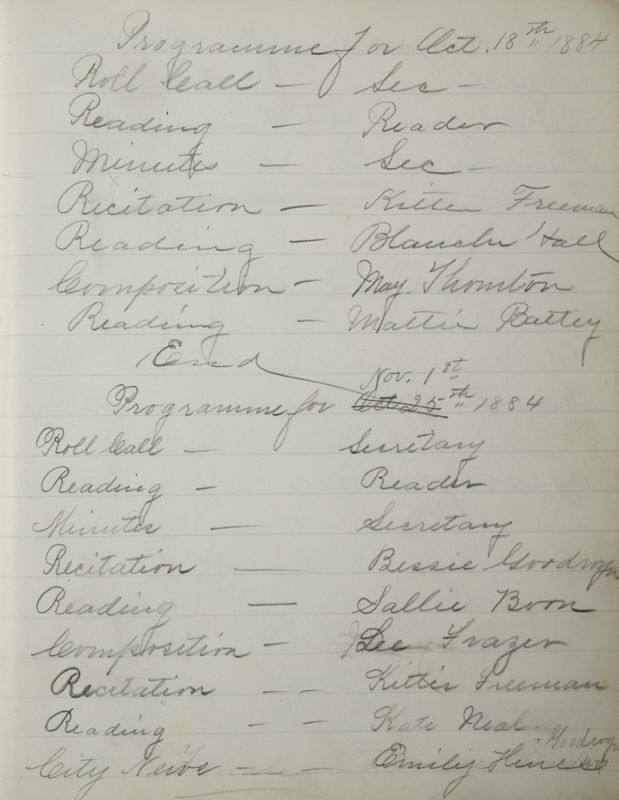 Programme for Oct. 18th 1884
Roll Call — Sec —
Reading — Reader
Minutes — Sec —
Recitation — Kittie Freeman
Reading — Blanche Hall
Composition — May Thornton
Reading — Mattie Battey
End
Nov. 1st
Programme for Oct 25th 1884
Roll Call — Secretary
Reading — Reader
Minutes — Secretary
Recitation — Bessie Goodwyn
Reading — Sallie Boon
Composition — Lee Frazer
Recitation — — Kittie Freeman
Reading — — Kate Neal
City News — — Emily Hines Goodwyn